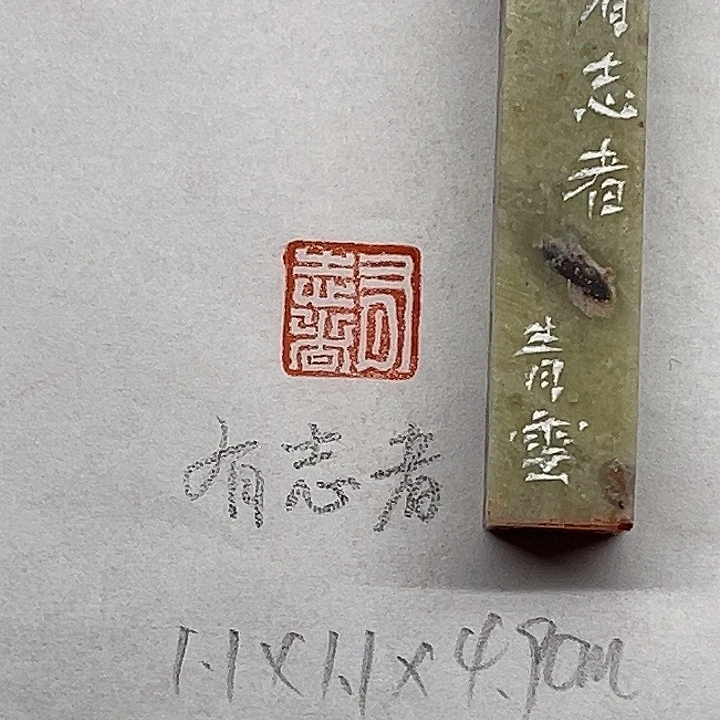 有志者
有志者
青雲
有志者
1.1×1.1×4.9cm